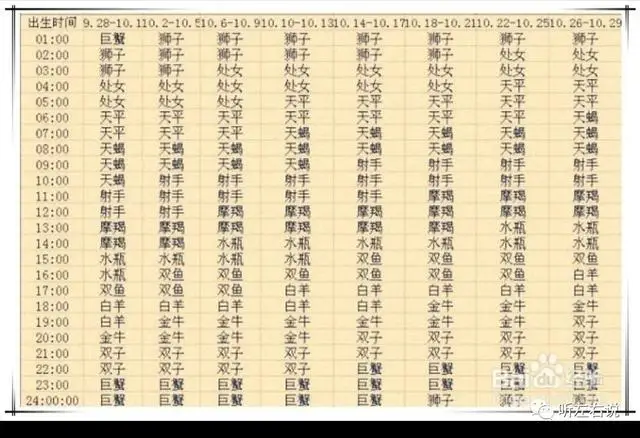 出生时间 9.28-10.1 10.2-10.5 10.6-10.9 10.10-10.13 10.14-10.17 10.18-10.21 10.22-10.25 10.26-10.29
01:00 巨蟹 狮子 狮子 狮子 狮子 狮子 狮子 狮子
02:00 狮子 狮子 狮子 狮子 狮子 狮子 处女 处女
03:00 狮子 狮子 处女 处女 处女 处女 处女 处女
04:00 处女 处女 处女 处女 处女 处女 天平 天平
05:00 处女 处女 处女 天平 天平 天平 天平 天平
06:00 天平 天平 天平 天平 天平 天平 天平 天蝎
07:00 天平 天平 天平 天蝎 天蝎 天蝎 天蝎 天蝎
08:00 天蝎 天蝎 天蝎 天蝎 天蝎 天蝎 天蝎 天蝎
09:00 天蝎 天蝎 天蝎 天蝎 射手 射手 射手 射手
10:00 天蝎 射手 射手 射手 射手 射手 射手 射手
11:00 射手 射手 射手 射手 射手 摩羯 摩羯 摩羯
12:00 射手 射手 摩羯 摩羯 摩羯 摩羯 摩羯 摩羯
13:00 摩羯 摩羯 摩羯 摩羯 摩羯 摩羯 水瓶 水瓶
14:00 摩羯 摩羯 水瓶 水瓶 水瓶 水瓶 水瓶 水瓶
15:00 水瓶 水瓶 水瓶 水瓶 双鱼 双鱼 双鱼 双鱼
16:00 水瓶 双鱼 双鱼 双鱼 双鱼 双鱼 双鱼 白羊
17:00 双鱼 双鱼 双鱼 白羊 白羊 白羊 白羊 白羊
18:00 白羊 白羊 白羊 白羊 白羊 金牛 金牛 金牛
19:00 白羊 金牛 金牛 金牛 金牛 金牛 金牛 双子
20:00 金牛 金牛 金牛 金牛 双子 双子 双子 双子
21:00 双子 双子 双子 双子 双子 双子 双子 双子
22:00 双子 双子 双子 双子 巨蟹 巨蟹 巨蟹 巨蟹
23:00 巨蟹 巨蟹 巨蟹 巨蟹 巨蟹 巨蟹 巨蟹 巨蟹
24:00:00 巨蟹 巨蟹 巨蟹 巨蟹 巨蟹 狮子 狮子 狮子
Bai 百科
听左右说